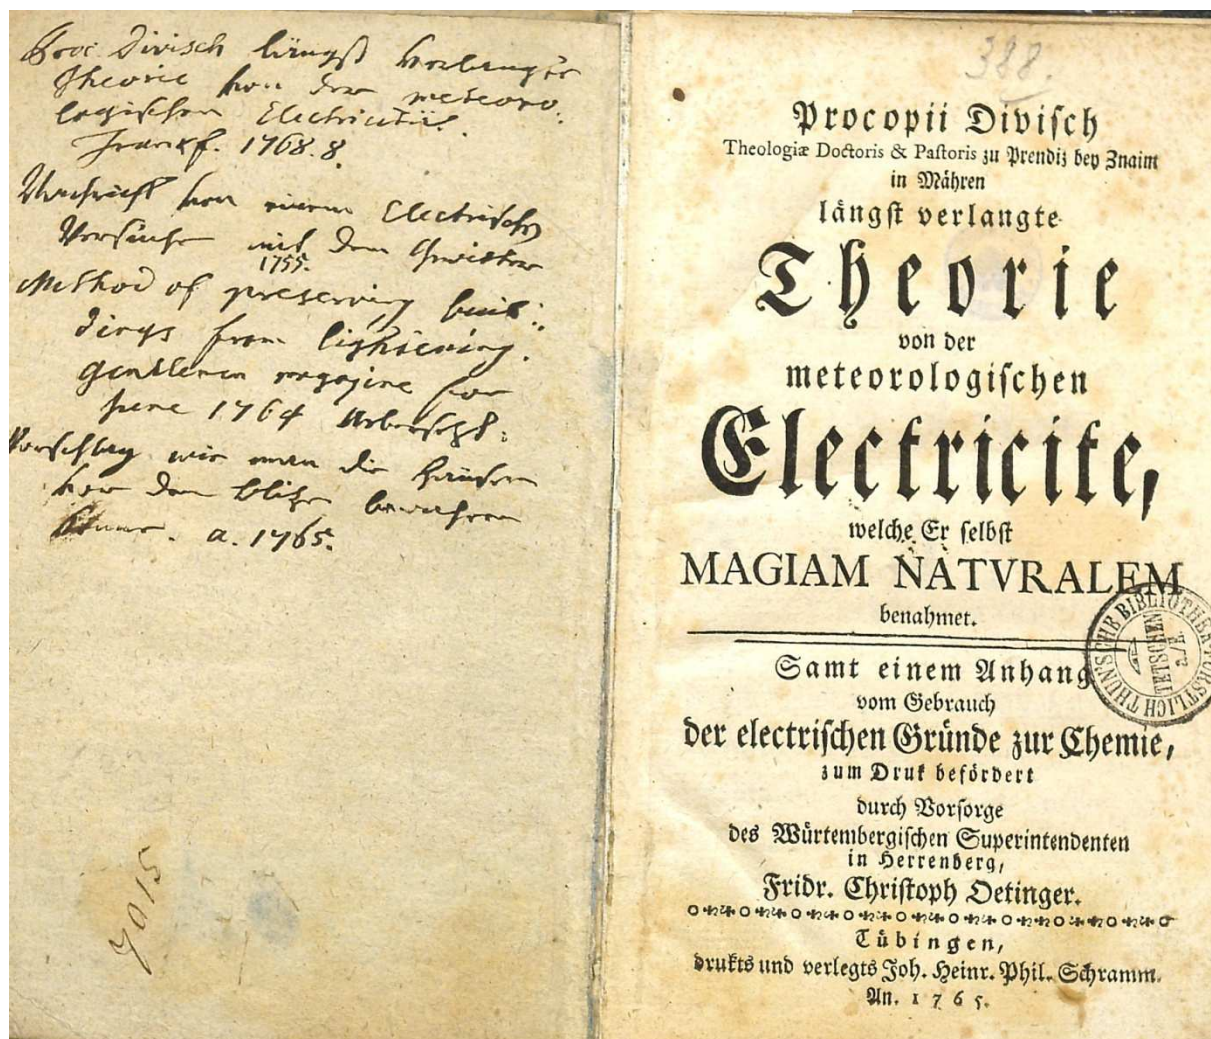 Proc. Divisch längst verlangte
Theorie von der meteoro-
logischen Electricität.
Frankf. 1768. 8.
Nachricht von einem Electrischen
Versuche mit dem Gewitter
1755.
Method of preserving buil:
dings from lightening.
gentlemen magazine for
June 1764 übersetzt:
Vorschlag wie man die Häuser
vor dem blitze bewahren
könne. a. 1765.
7015
388.
Procopii Diviſch
Theologiæ Doctoris & Paſtoris zu Prendiz bey Znaim
in Mähren
längſt verlangte
Theorie
von der
meteorologiſchen
Electricite,
welche Er ſelbſt
MAGIAM NATVRALEM
benahmet.
Samt einem Anhang
vom Gebrauch
der electriſchen Gründe zur Chemie,
zum Druk befördert
durch Vorſorge
des Würtembergiſchen Superintendenten
in Herrenberg,
Fridr. Chriſtoph Oetinger.
Tübingen,
drukts und verlegts Joh. Heinr. Phil. Schramm.
An. 1765.
FÜRSTLICH THUN'SCHE BIBLIOTHEK
TETSCHEN
a./E.